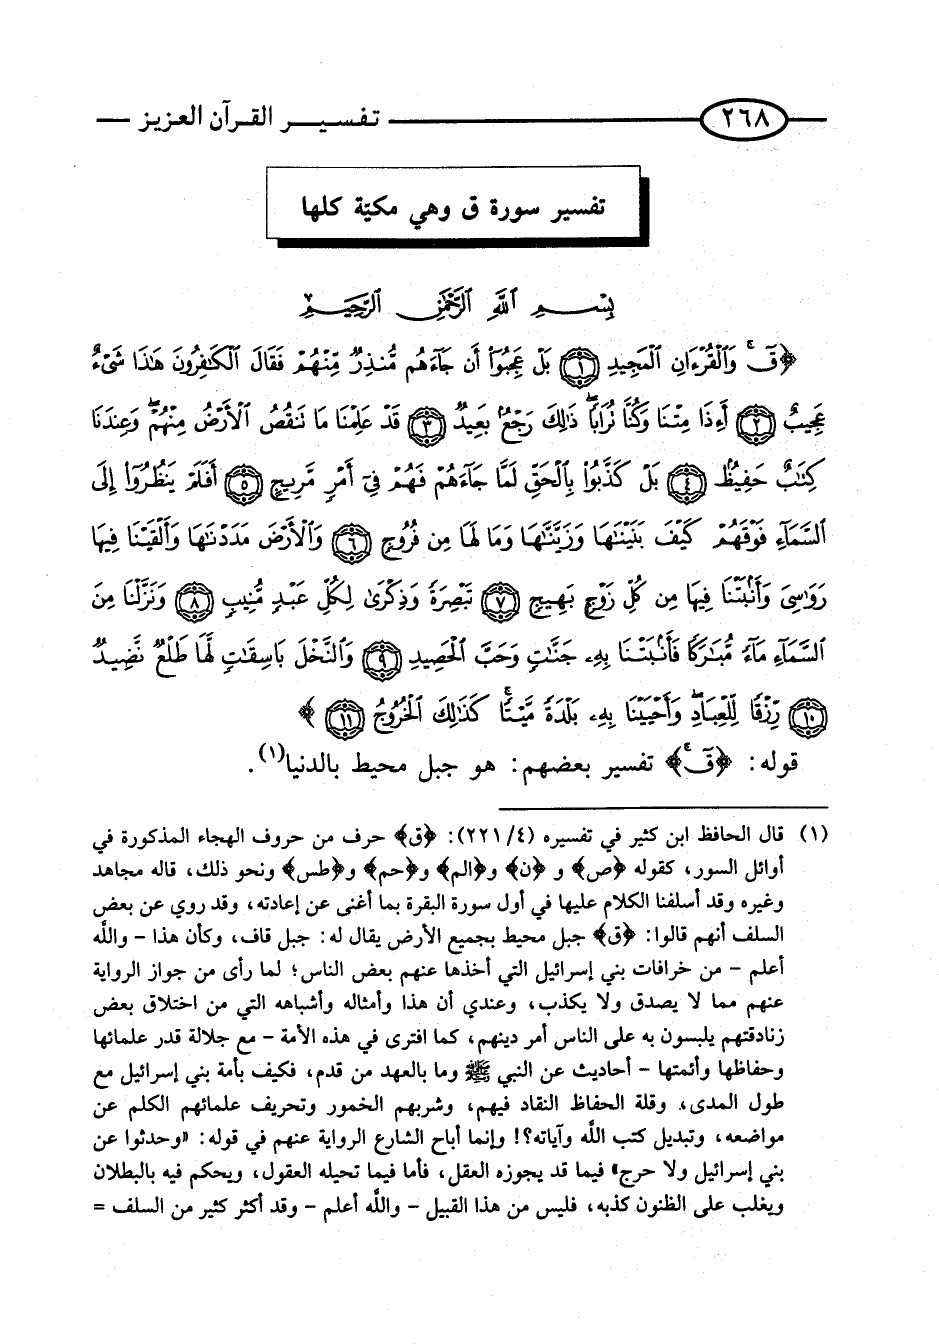 ٢٦٨ تفسير القرآن العزيز
تفسير سورة ق وهي مكيّة كلها
بِسْمِ ٱللَّهِ ٱلرَّحْمَٰنِ ٱلرَّحِيمِ
﴿قٓ ۚ وَٱلْقُرْءَانِ ٱلْمَجِيدِ ١ بَلْ عَجِبُوٓا۟ أَن جَآءَهُم مُّنذِرٌ مِّنْهُمْ فَقَالَ ٱلْكَٰفِرُونَ هَٰذَا شَىْءٌ
عَجِيبٌ ٢ أَءِذَا مِتْنَا وَكُنَّا تُرَابًا ۖ ذَٰلِكَ رَجْعٌۢ بَعِيدٌ ٣ قَدْ عَلِمْنَا مَا تَنقُصُ ٱلْأَرْضُ مِنْهُمْ ۖ وَعِندَنَا
كِتَٰبٌ حَفِيظٌۢ ٤ بَلْ كَذَّبُوا۟ بِٱلْحَقِّ لَمَّا جَآءَهُمْ فَهُمْ فِىٓ أَمْرٍ مَّرِيجٍ ٥ أَفَلَمْ يَنظُرُوٓا۟ إِلَى
ٱلسَّمَآءِ فَوْقَهُمْ كَيْفَ بَنَيْنَٰهَا وَزَيَّنَّٰهَا وَمَا لَهَا مِن فُرُوجٍ ٦ وَٱلْأَرْضَ مَدَدْنَٰهَا وَأَلْقَيْنَا فِيهَا
رَوَٰسِىَ وَأَنۢبَتْنَا فِيهَا مِن كُلِّ زَوْجٍۭ بَهِيجٍ ٧ تَبْصِرَةً وَذِكْرَىٰ لِكُلِّ عَبْدٍ مُّنِيبٍ ٨ وَنَزَّلْنَا مِنَ
ٱلسَّمَآءِ مَآءً مُّبَٰرَكًا فَأَنۢبَتْنَا بِهِۦ جَنَّٰتٍ وَحَبَّ ٱلْحَصِيدِ ٩ وَٱلنَّخْلَ بَاسِقَٰتٍ لَّهَا طَلْعٌ نَّضِيدٌ
١٠ رِّزْقًا لِّلْعِبَادِ ۖ وَأَحْيَيْنَا بِهِۦ بَلْدَةً مَّيْتًا ۚ كَذَٰلِكَ ٱلْخُرُوجُ ١١﴾
قوله: ﴿قٓ ۚ﴾ تفسير بعضهم: هو جبل محيط بالدنيا(١).
(١) قال الحافظ ابن كثير في تفسيره (٤/ ٢٢١): ﴿ق﴾ حرف من حروف الهجاء المذكورة في
أوائل السور، كقوله ﴿ص﴾ و ﴿ن﴾ و﴿الم﴾ و﴿حم﴾ و﴿طس﴾ ونحو ذلك، قاله مجاهد
وغيره وقد أسلفنا الكلام عليها في أول سورة البقرة بما أغنى عن إعادته، وقد روي عن بعض
السلف أنهم قالوا: ﴿ق﴾ جبل محيط بجميع الأرض يقال له: جبل قاف، وكأن هذا - والله
أعلم - من خرافات بني إسرائيل التي أخذها عنهم بعض الناس؛ لما رأى من جواز الرواية
عنهم مما لا يصدق ولا يكذب، وعندي أن هذا وأمثاله وأشباهه التي من اختلاق بعض
زنادقتهم يلبسون به على الناس أمر دينهم، كما افترى في هذه الأمة - مع جلالة قدر علمائها
وحفاظها وأئمتها - أحاديث عن النبي ﷺ وما بالعهد من قدم، فكيف بأمة بني إسرائيل مع
طول المدى، وقلة الحفاظ النقاد فيهم، وشربهم الخمور وتحريف علمائهم الكلم عن
مواضعه، وتبديل كتب الله وآياته؟! وإنما أباح الشارع الرواية عنهم في قوله: «وحدثوا عن
بني إسرائيل ولا حرج» فيما قد يجوزه العقل، فأما فيما تحيله العقول، ويحكم فيه بالبطلان
ويغلب على الظنون كذبه، فليس من هذا القبيل - والله أعلم - وقد أكثر كثير من السلف =